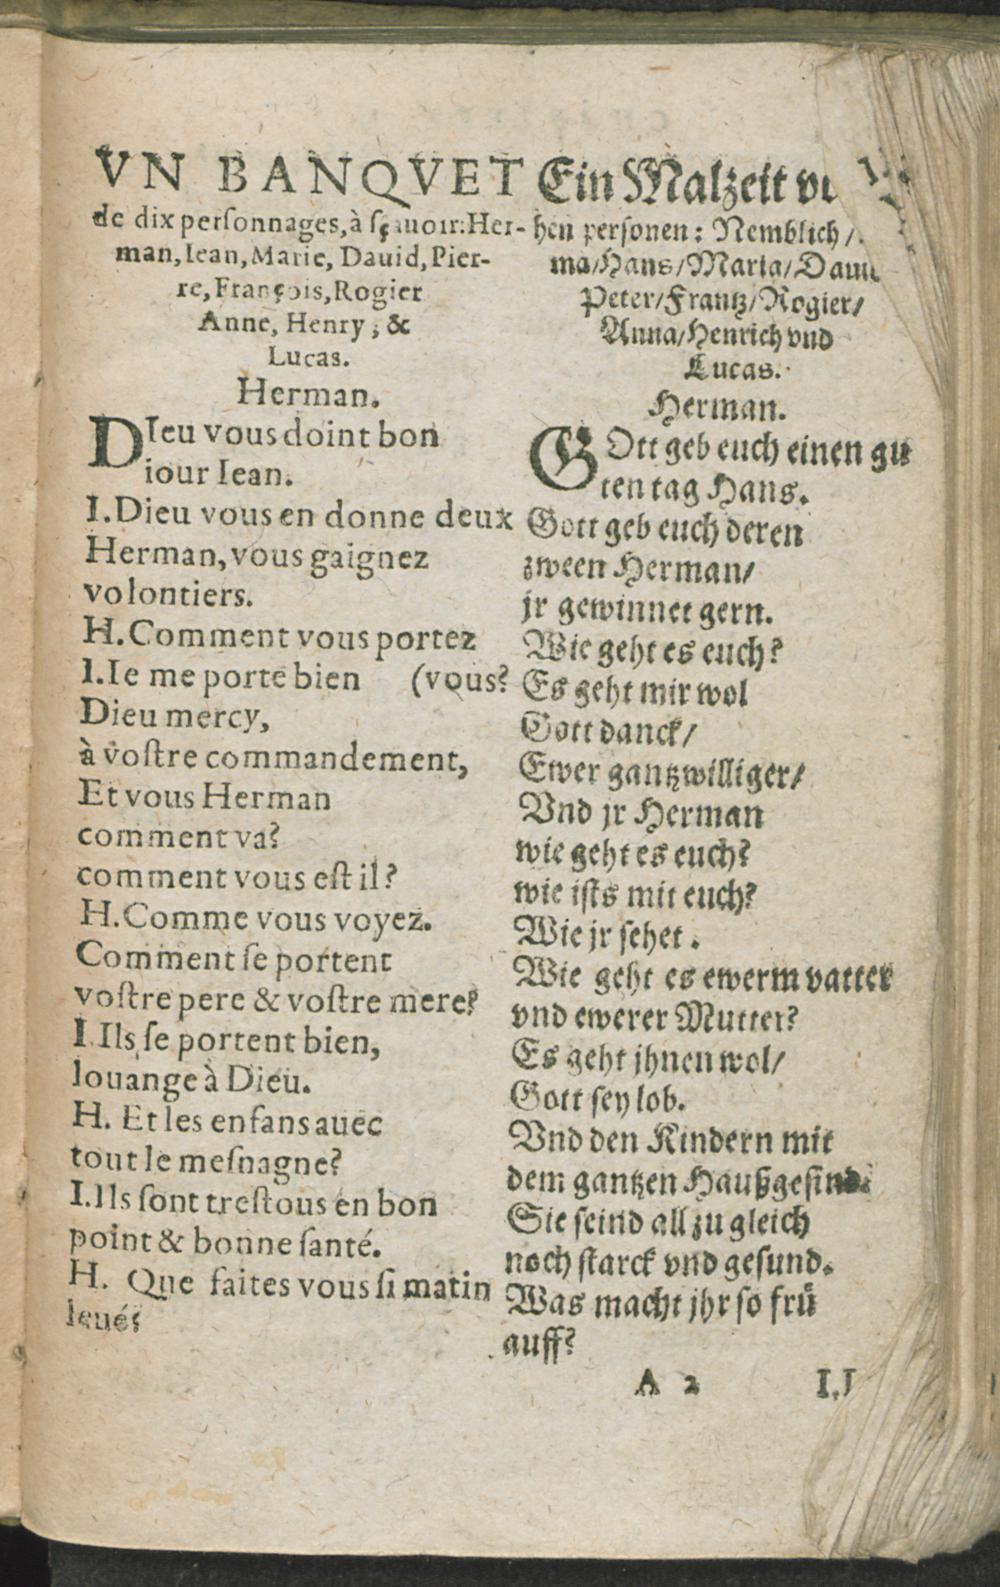 VN BANQVET
de dix perſonnages, à ſçauoir: Her-
man, Iean, Marie, Dauid, Pier-
re, François, Rogier
Anne, Henry, &
Lucas.
Herman.
DIeu vous doint bon
iour Iean.
I. Dieu vous en donne deux
Herman, vous gaignez
volontiers.
H. Comment vous portez
I. Ie me porte bien (vous?
Dieu mercy,
à voſtre commandement,
Et vous Herman
comment va?
comment vous eſt il?
H. Comme vous voyez.
Comment ſe portent
voſtre pere & voſtre mere?
I. Ils ſe portent bien,
louange à Dieu.
H. Et les enfans auec
tout le meſnagne?
I. Ils ſont treſtous en bon
point & bonne ſanté.
H. Que faites vous ſi matin
leué?
Ein Malzeit
hen perſonen: Nemblich/
ma/Hans/Maria/
Peter/Frantz/Rogier/
Anna/Henrich vnd
Lucas.
Herman.
GOtt geb euch einen gu
ten tag Hans.
Gott geb euch deren
zween Herman/
jr gewinnet gern.
Wie geht es euch?
Es geht mir wol
Gott danck/
Ewer gantzwilliger/
Vnd jr Herman
wie geht es euch?
wie iſts mit euch?
Wie jr ſehet.
Wie geht es ewerm vatter
vnd ewerer Mutter?
Es geht jhnen wol/
Gott ſey lob.
Vnd den Kindern mit
dem gantzen Haußgeſind.
Sie ſeind all zu gleich
noch ſtarck vnd geſund.
Was macht jhr ſo frü
auff?
A 2